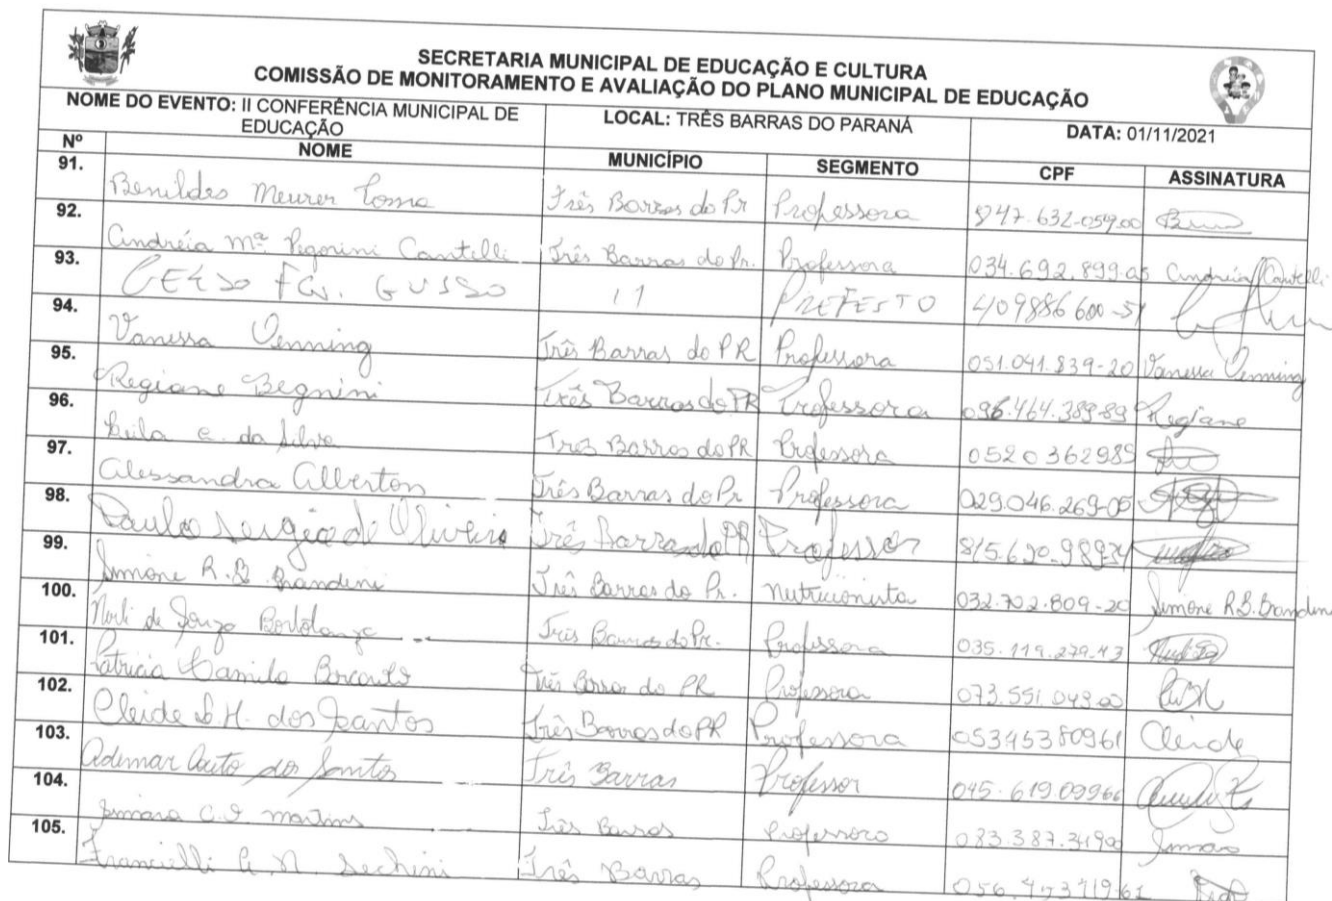 SECRETARIA MUNICIPAL DE EDUCAÇÃO E CULTURA
COMISSÃO DE MONITORAMENTO E AVALIAÇÃO DO PLANO MUNICIPAL DE EDUCAÇÃO
NOME DO EVENTO: II CONFERÊNCIA MUNICIPAL DE EDUCAÇÃO LOCAL: TRÊS BARRAS DO PARANÁ DATA: 01/11/2021
Nº NOME MUNICÍPIO SEGMENTO CPF ASSINATURA
91. Benildes Meurer Três Barras do Pr Professora
92. Andréia Mª Pigorini Cantelli Três Barras do Pr. Professora 034.692.899-05 Andréia Cantelli
93. GUSSO 11 PREFEITO 409886600-51
94. Vanessa Venning Três Barras do PR Professora 051.041.839-20 Vanessa Venning
95. Regiane Begnini Três Barras do PR Professora 096.464.389-89 Regiane
96. Leila da Silva Três Barras do PR Professora 0520362989
97. Alessandra Alberton Três Barras do Pr Professora 029.046.269-05
98. Paulo Sergio de Oliveira Três Barras do PR Professor
99. Simone R.B. Brandini Três Barras do Pr. Nutricionista 032.702.809-20 Simone R.B. Brandini
100. de Souza Três Barras do Pr. Professora 035.119.279-43
101. Patricia Camila Três Barras do PR Professora 073.551.049-00
102. Cleide S.H. dos Santos Três Barras do PR Professora 05345380961 Cleide
103. Ademar Couto dos Santos Três Barras Professor 045.619.09966
104. C.S. Martins Três Barras Professora
105. Francielli Três Barras Professora